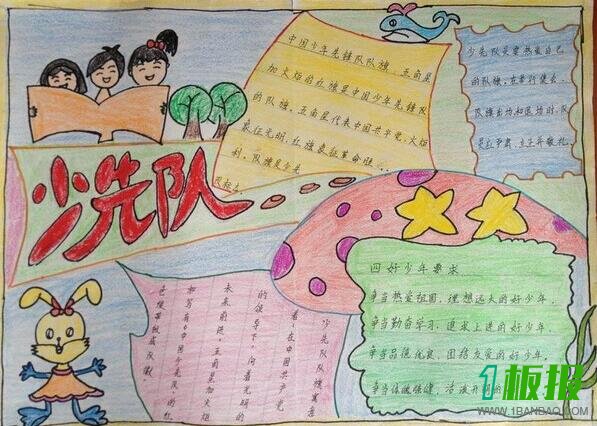 少先队
中国少年先锋队队旗,五角星
加火炬的红旗是中国少年先锋队
的队旗。五角星代表中国共产党,火炬
象征光明,红旗象征革命胜
利。队旗是少先
少先队员要热爱自己
的队旗,在举行集会、
队旗出场和退场时,队
员红
立正并敬礼
少先队队旗寓意
着:在中国共产党
的领导下,向着光明的
未来前进。五角星加火炬
和写有“中国少先队”的红
色绶带组成队徽
四好少年要求
争当热爱祖国、理想远大的好少年,
争当勤奋学习、追求上进的好少年,
争当品德优良、团结友爱的好少年。
争当体魄强健、活泼开朗的
1板报
WWW.1BANBAO.COM